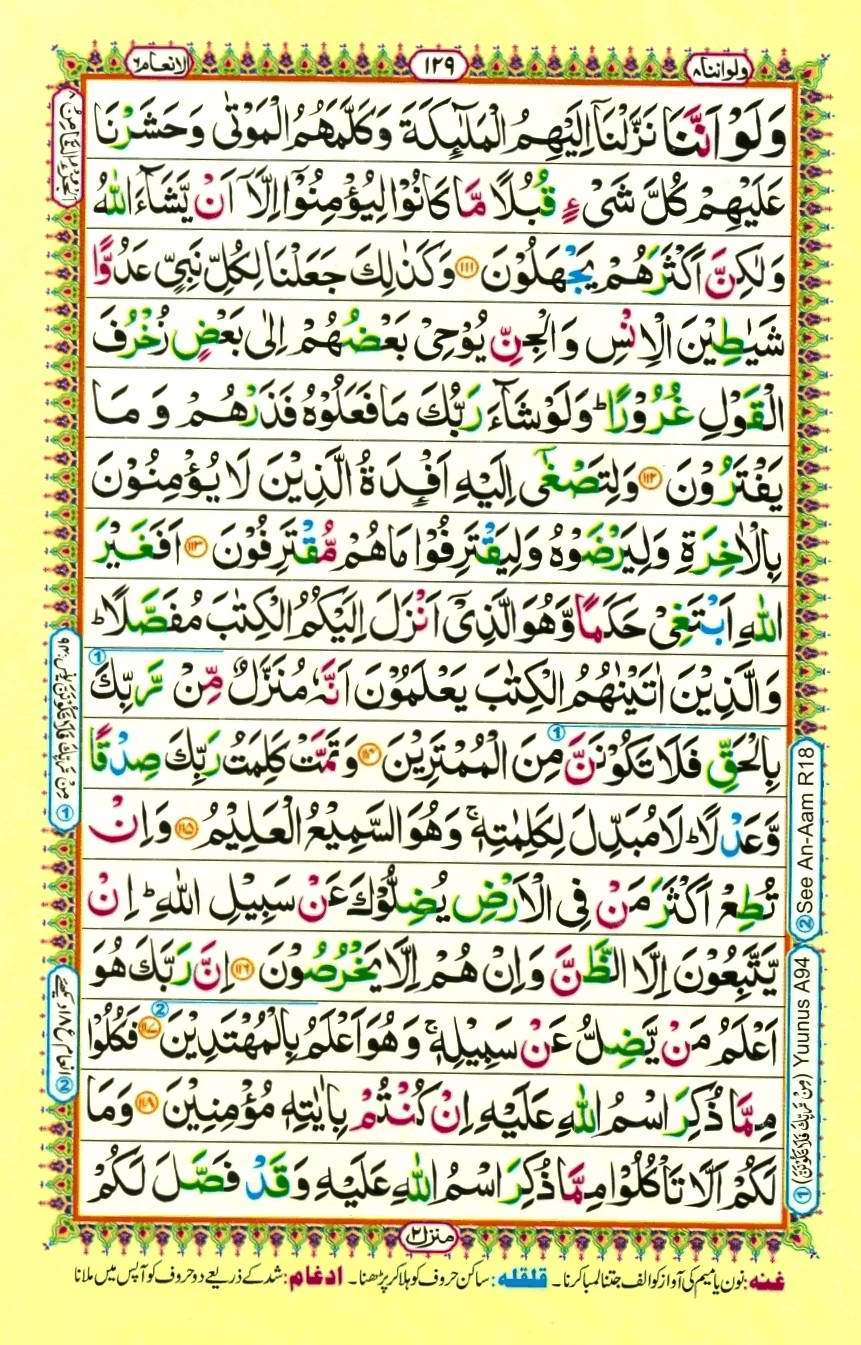 ولواننا ۸
۱۲۹
الانعام ۶
وَلَوْ اَنَّنَا نَزَّلْنَاۤ اِلَیْهِمُ الْمَلٰٓئِكَةَ وَكَلَّمَهُمُ الْمَوْتٰی وَحَشَرْنَا
عَلَیْهِمْ كُلَّ شَیْءٍ قُبُلًا مَّا كَانُوْا لِیُؤْمِنُوْۤا اِلَّاۤ اَنْ یَّشَآءَ اللّٰهُ
وَلٰكِنَّ اَكْثَرَهُمْ یَجْهَلُوْنَ ۱۱۱ وَكَذٰلِكَ جَعَلْنَا لِكُلِّ نَبِیٍّ عَدُوًّا
شَیٰطِیْنَ الْاِنْسِ وَالْجِنِّ یُوْحِیْ بَعْضُهُمْ اِلٰی بَعْضٍ زُخْرُفَ
الْقَوْلِ غُرُوْرًا ؕ وَلَوْ شَآءَ رَبُّكَ مَا فَعَلُوْهُ فَذَرْهُمْ وَمَا
یَفْتَرُوْنَ ۱۱۲ وَلِتَصْغٰۤی اِلَیْهِ اَفْـِٕدَةُ الَّذِیْنَ لَا یُؤْمِنُوْنَ
بِالْاٰخِرَةِ وَلِیَرْضَوْهُ وَلِیَقْتَرِفُوْا مَا هُمْ مُّقْتَرِفُوْنَ ۱۱۳ اَفَغَیْرَ
اللّٰهِ اَبْتَغِیْ حَكَمًا وَّهُوَ الَّذِیْۤ اَنْزَلَ اِلَیْكُمُ الْكِتٰبَ مُفَصَّلًا ؕ
وَالَّذِیْنَ اٰتَیْنٰهُمُ الْكِتٰبَ یَعْلَمُوْنَ اَنَّهٗ مُنَزَّلٌ مِّنْ رَّبِّكَ
بِالْحَقِّ فَلَا تَكُوْنَنَّ مِنَ الْمُمْتَرِیْنَ ۱۱۴ وَتَمَّتْ كَلِمَتُ رَبِّكَ صِدْقًا
وَّعَدْلًا ؕ لَا مُبَدِّلَ لِكَلِمٰتِهٖ ۚ وَهُوَ السَّمِیْعُ الْعَلِیْمُ ۱۱۵ وَاِنْ
تُطِعْ اَكْثَرَ مَنْ فِی الْاَرْضِ یُضِلُّوْكَ عَنْ سَبِیْلِ اللّٰهِ ؕ اِنْ
یَّتَّبِعُوْنَ اِلَّا الظَّنَّ وَاِنْ هُمْ اِلَّا یَخْرُصُوْنَ ۱۱۶ اِنَّ رَبَّكَ هُوَ
اَعْلَمُ مَنْ یَّضِلُّ عَنْ سَبِیْلِهٖ ۚ وَهُوَ اَعْلَمُ بِالْمُهْتَدِیْنَ ۱۱۷ فَكُلُوْا
مِمَّا ذُكِرَ اسْمُ اللّٰهِ عَلَیْهِ اِنْ كُنْتُمْ بِاٰیٰتِهٖ مُؤْمِنِیْنَ ۱۱۸ وَمَا
لَكُمْ اَلَّا تَاْكُلُوْا مِمَّا ذُكِرَ اسْمُ اللّٰهِ عَلَیْهِ وَقَدْ فَصَّلَ لَكُمْ
② See An-Aam R18
① (مِنْ رَّبِّكَ فَلَا تَكُوْنَنَّ) Yuunus A94
منزل ۲
غنه: نون یا میم کی آواز کو الف جتنا لمبا کرنا۔ قلقله: ساکن حروف کو ہلا کر پڑھنا۔ ادغام: شد کے ذریعے دو حروف کو آپس میں ملانا